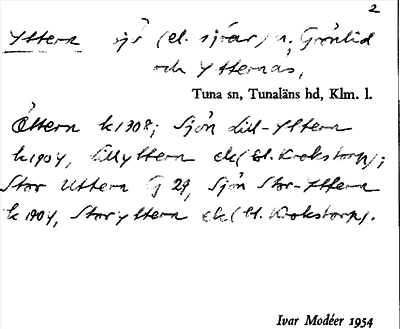 2
Yttern sjö (el. sjöar) n. Grönlid
och Ytternäs,
Tuna sn, Tunaläns hd, Klm. l.
Öttern k1708; Sjön Lill-Yttern
k1904, Lillyttern ek(bl. Krokstorp);
Stor Uttern G 29, Sjön Stor-Yttern
k1904, Storyttern ek(bl. Krokstorp).
Ivar Modéer 1954